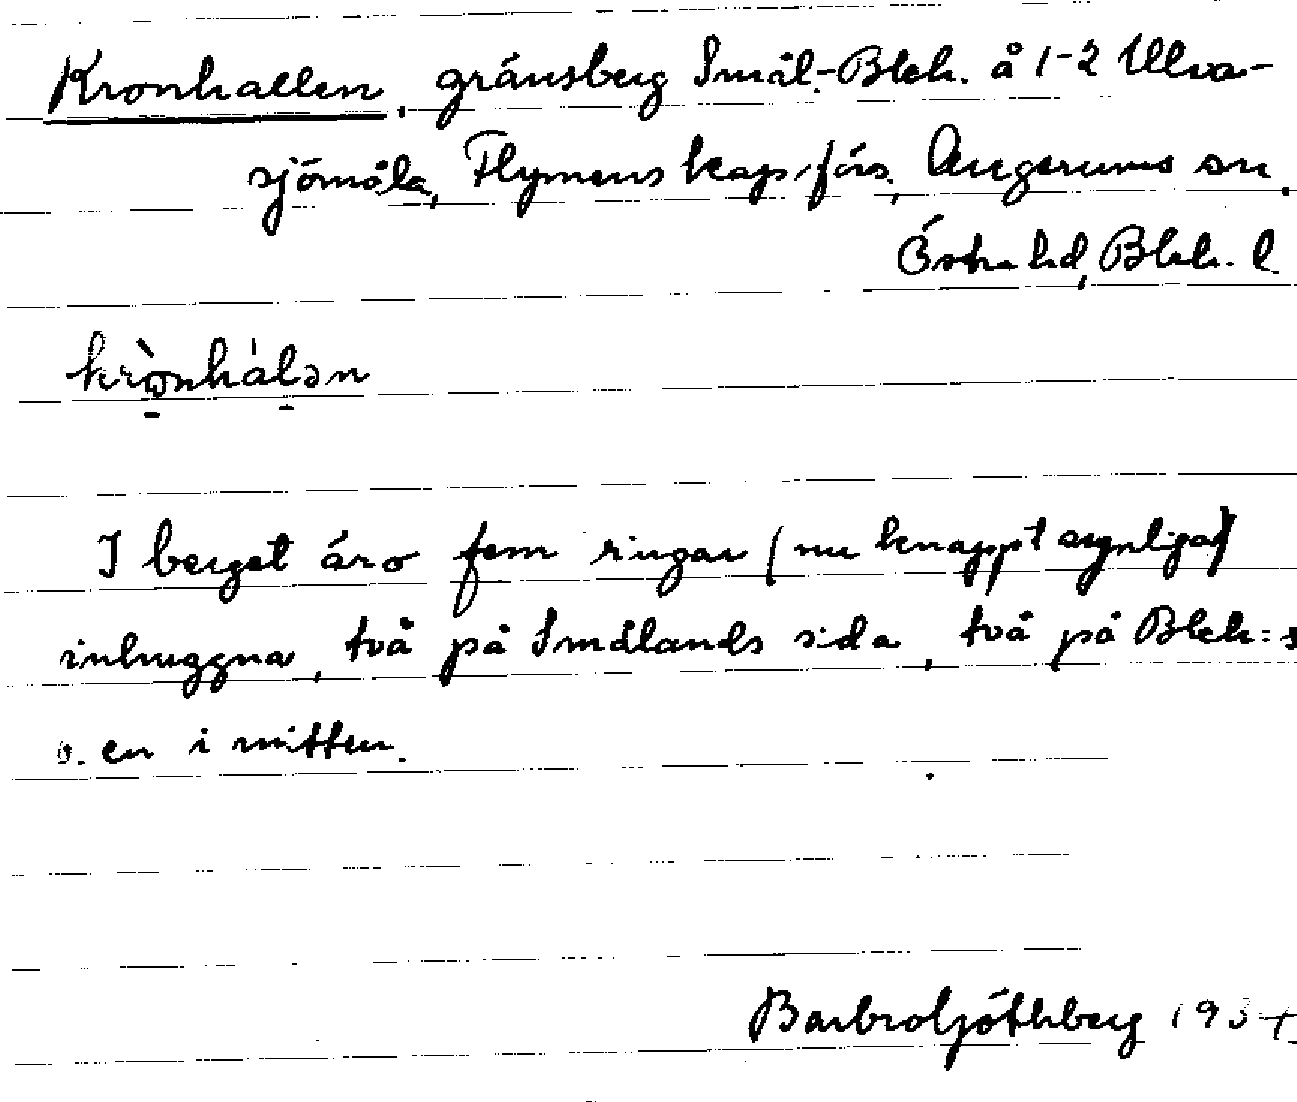 Kronhallen, gränsberg Smål.-Blek. å 1-2 Ulva-
sjömåla, Flymens kap.förs., Augerums sn.
Östra hd, Blek. l.
krònhálən
I berget äro fem ringar (nu knappt synliga)
inhuggna, två på Smålands sida, två på Blek:s
o. en i mitten.
Barbro Ljöthberg